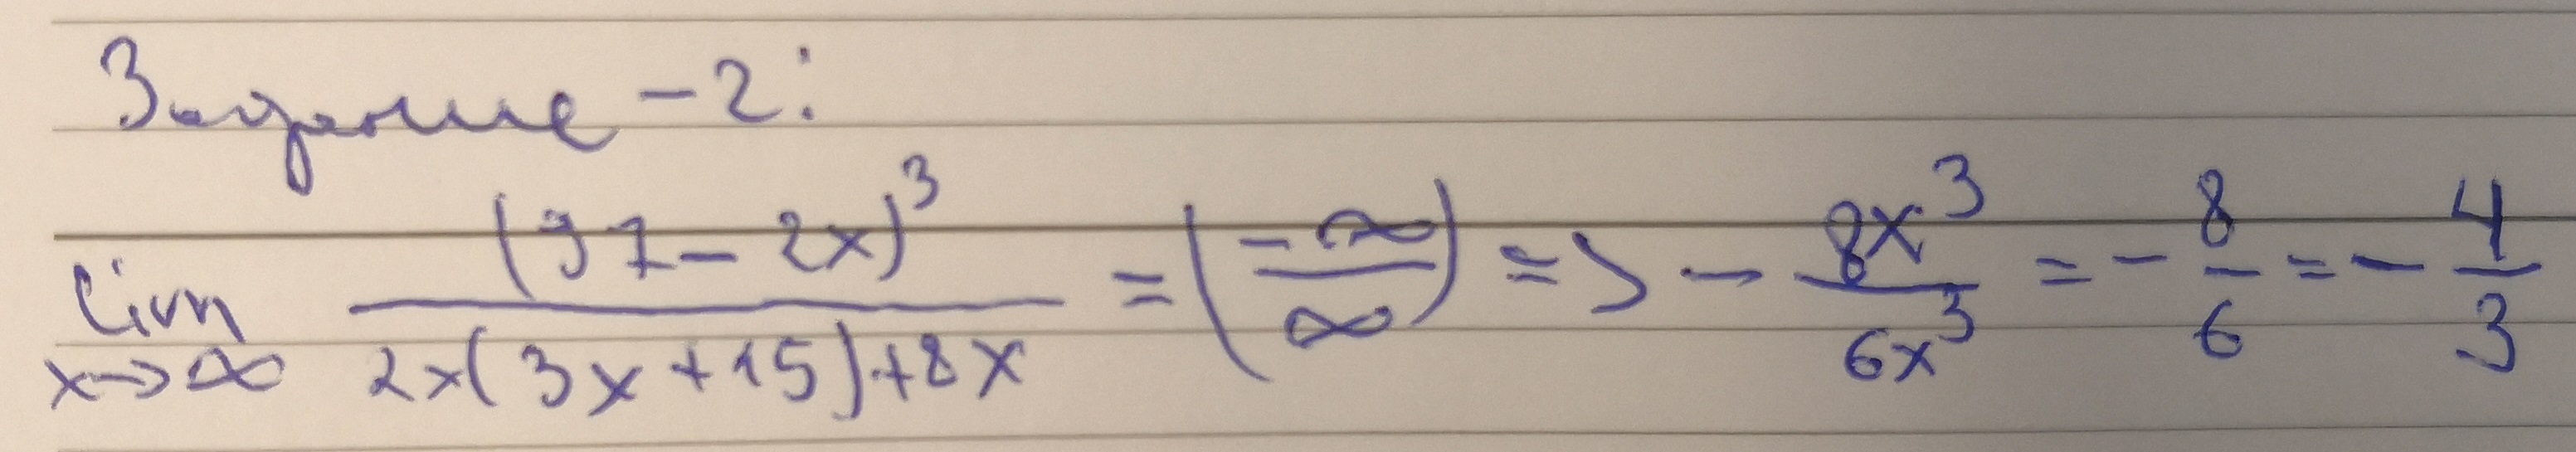 Задание - 2:
lim x→∞ (97 - 2x)³ / (2x(3x + 15) + 8x) = (-∞/∞) => - 8x³/6x³ = - 8/6 = - 4/3